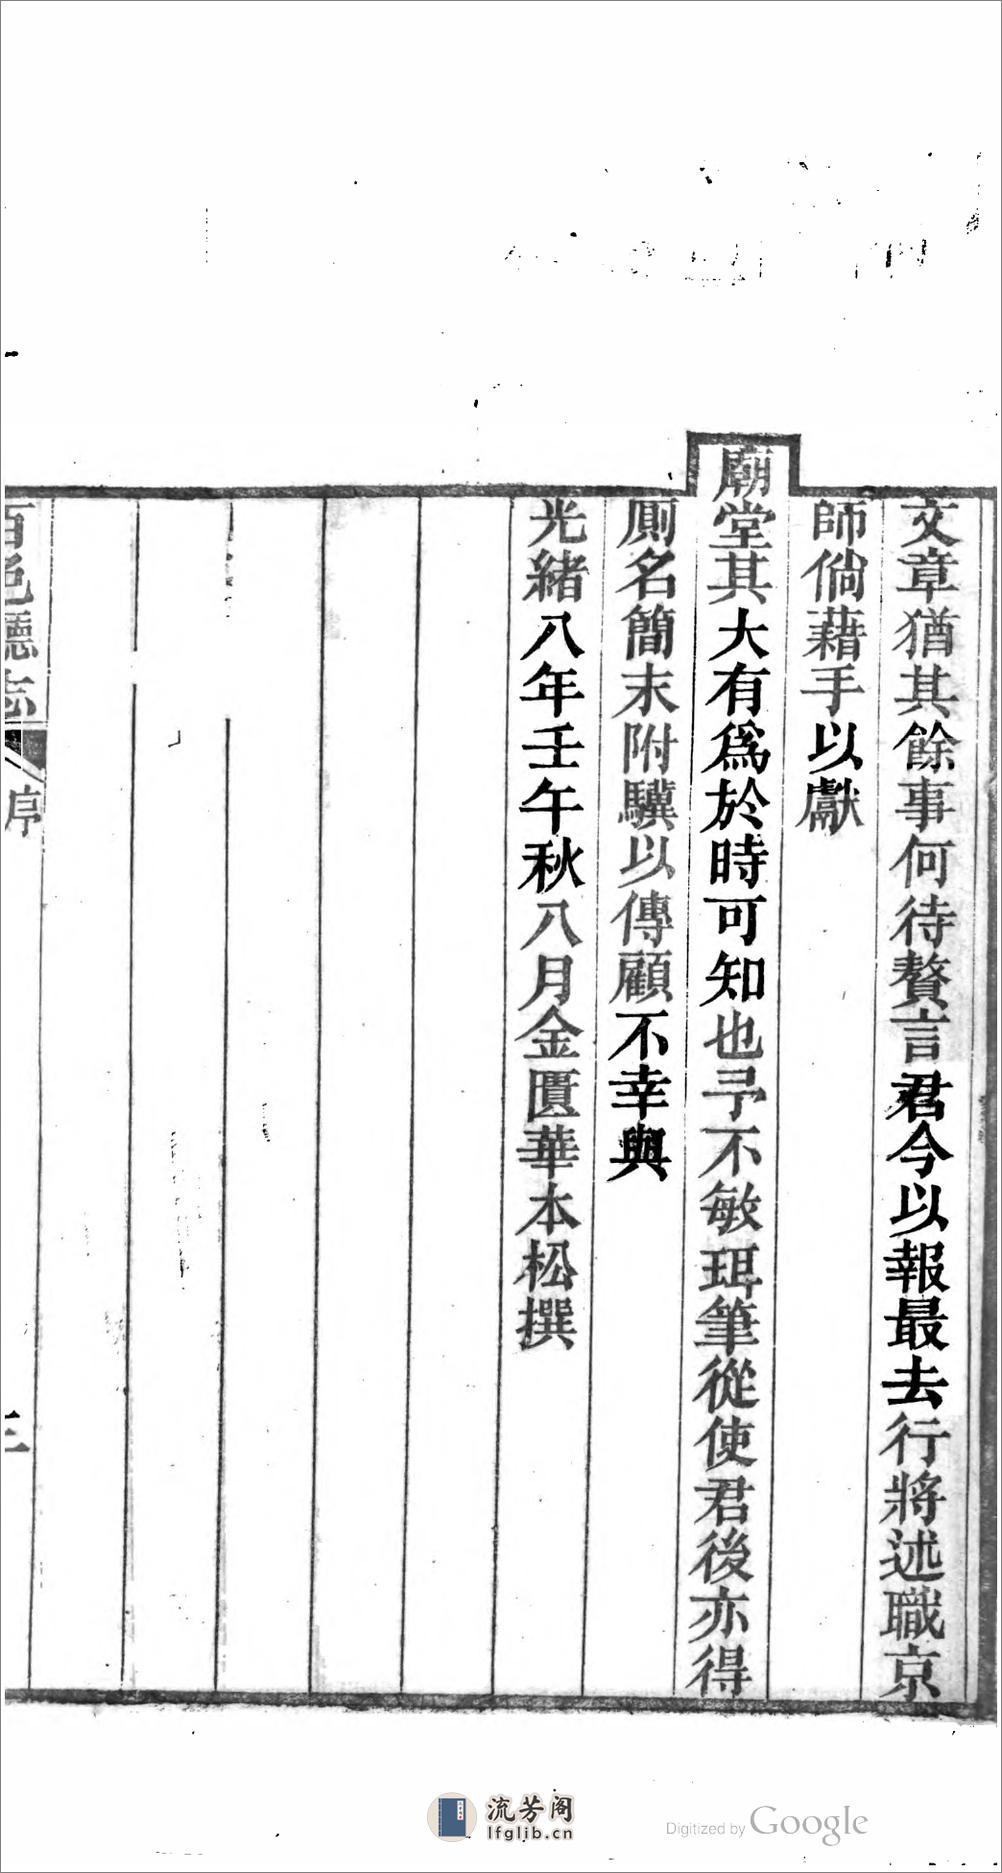 文章猶其餘事何待贅言君今以報最去行將述職京
師倘藉手以獻
廟堂其大有爲於時可知也予不敏珥筆從使君後亦得
厠名簡末附驥以傳顧不幸與
光緒八年壬午秋八月金匱華本松撰
百色廳志
序
三
流芳阁
lfglib.cn
Digitized by Google